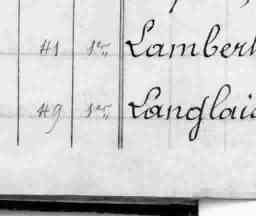 41 1er Lambert
49 1er Langlais